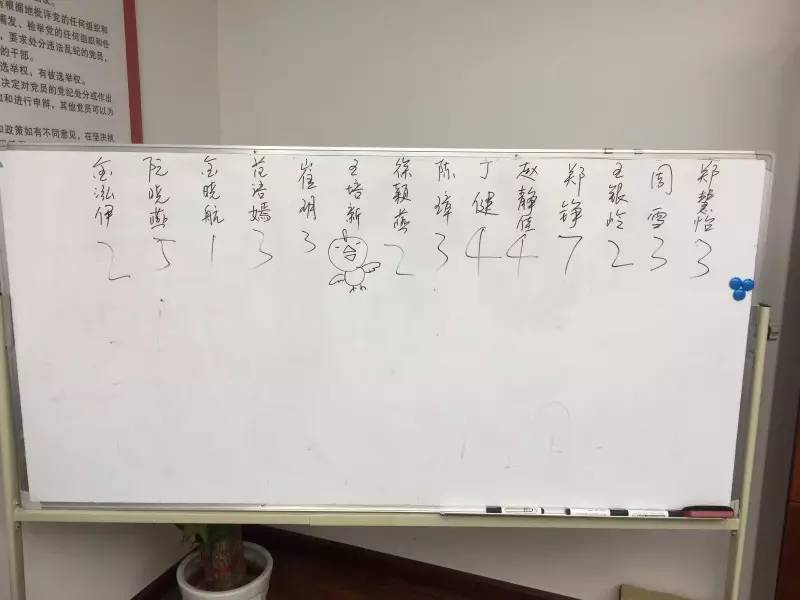 根据地批评党的任何组织和
揭发、检举党的任何组织和任
，要求处分违法乱纪的党员，
的干部。
选举权，有被选举权。
决定对党员的党纪处分或作出
加和进行申辩，其他党员可以为
和政策如有不同意见，在坚决执
金泓伊 2
阮晓燕 5
金晓航 1
范洛嫣 3
崔玥 3
王培新
徐颖燕 2
陈璋 3
丁健 4
赵静佳 4
郑铮 7
王银岭 2
周雪 3
郑慧怡 3